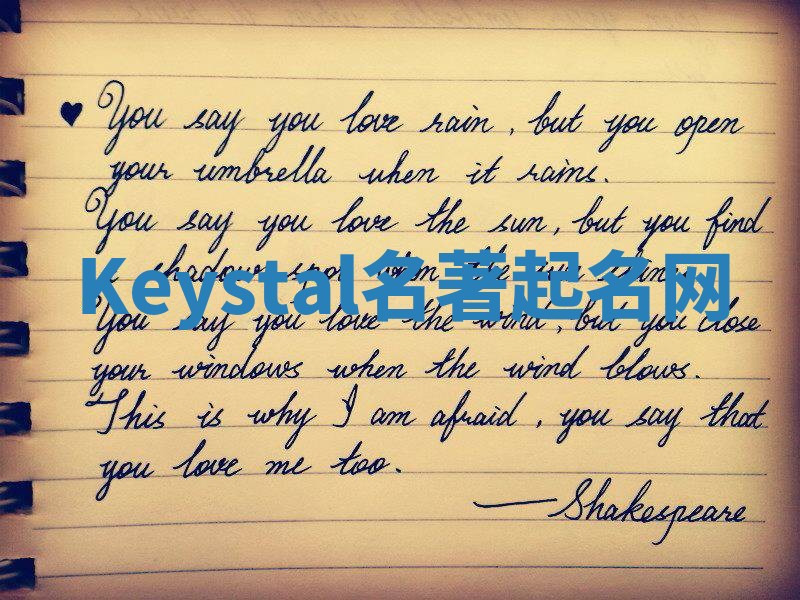 ♥ You say you love rain, but you open
your umbrella when it rains.
You say you love the sun, but you find
a shadow spot when the sun shines.
Keystal名著起名网
You say you love the wind, but you close
your windows when the wind blows.
This is why I am afraid, you say that
you love me too.
—Shakespeare